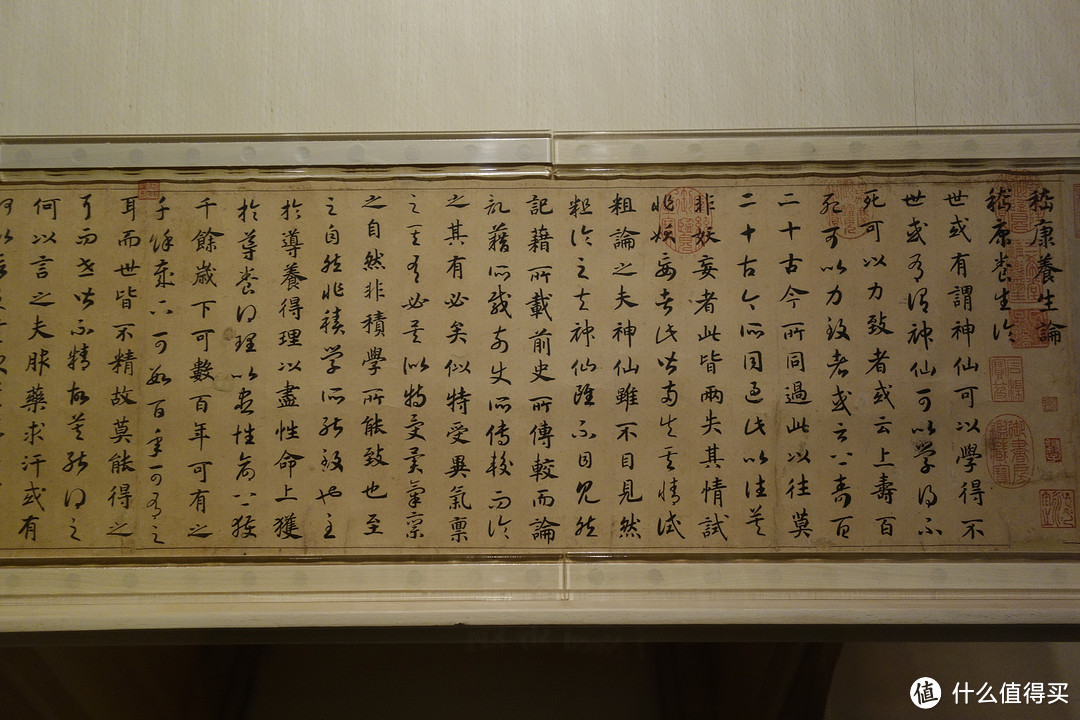 嵇康養生論
嵇康養生論
世或有謂神仙可以學得不
世或有謂神仙可以學得不
死可以力致者或云上壽百
死可以力致者或云上壽百
二十古今所同過此以往莫
二十古今所同過此以往莫
非妖妄者此皆兩失其情試
非妖妄者此皆兩失其情試
粗論之夫神仙雖不目見然
粗論之夫神仙雖不目見然
記籍所載前史所傳較而論
記籍所載前史所傳較而論
之其有必矣似特受異氣稟
之其有必矣似特受異氣稟
之自然非積學所能致也至
之自然非積學所能致也至
於導養得理以盡性命上獲
於導養得理以盡性命上獲
千餘歲下可數百年可有之
千餘歲下可數百年可有之
耳而世皆不精故莫能得之
耳而世皆不精故莫能得之
何以言之夫服藥求汗或有
值 什么值得买